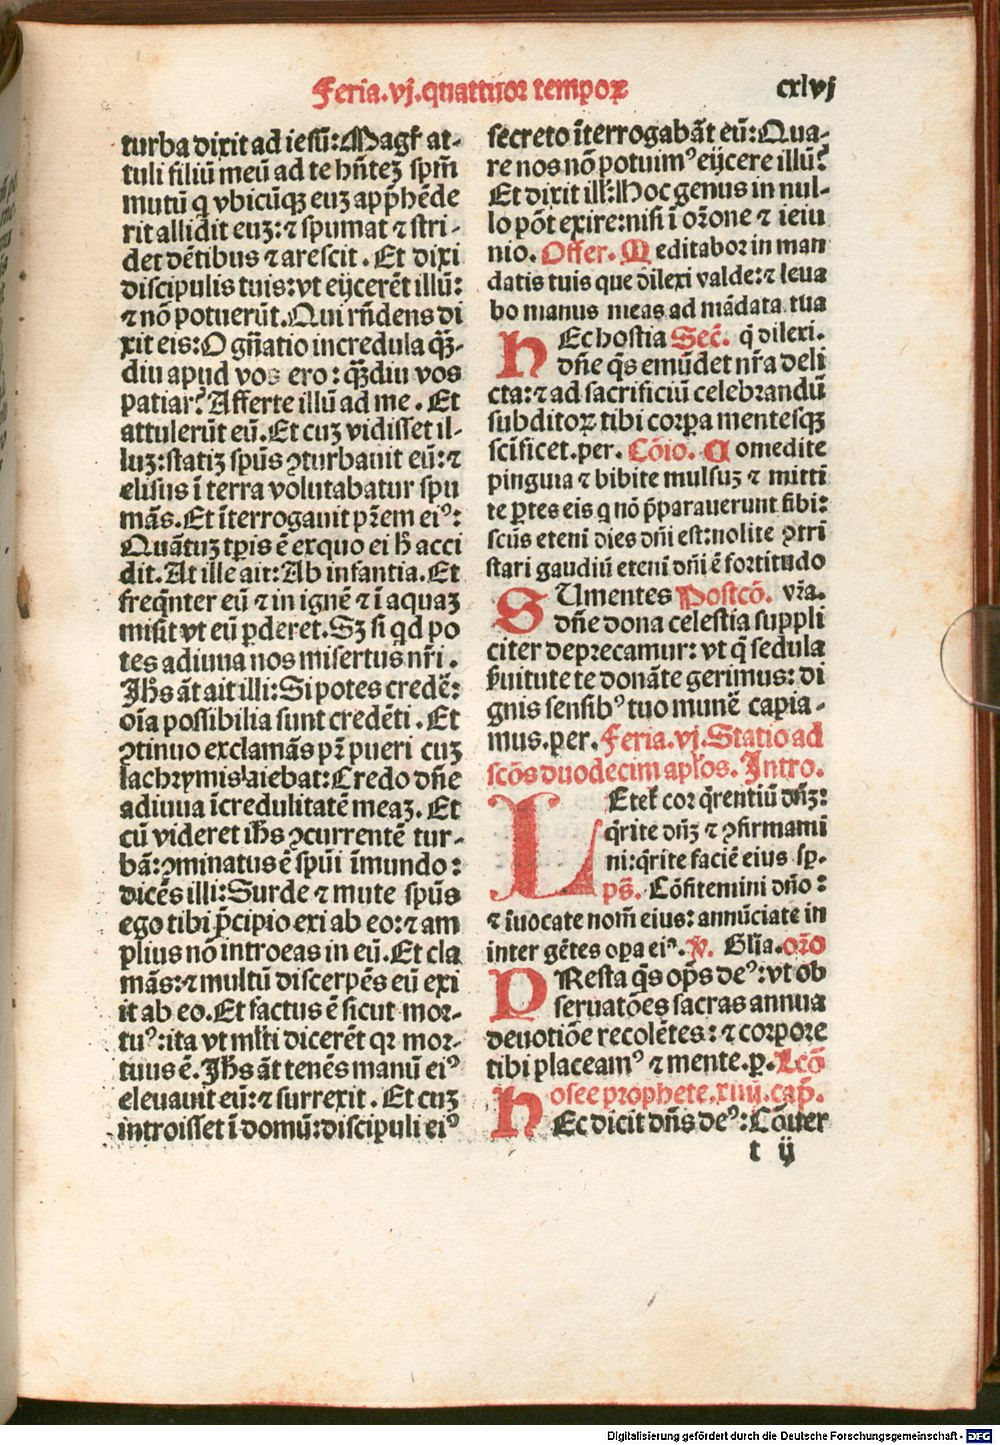 Feria.vj.quattuor tempoꝝ
cxlvj
turba dixit ad iesū: Magr̄ at-
tuli filiū meū ad te hn̄teꝫ spm̄
mutū q vbicūqꝫ euꝫ app̄hēde
rit allidit euꝫ: ⁊ spumat ⁊ stri-
det dētibus ⁊ arescit. Et dixi
discipulis tuis: vt eijcerēt illū:
⁊ nō potuerūt. Qui rn̄dens di
xit eis: O gn̄atio incredula qꝫ̄-
diu apud vos ero: qꝫ̄diu vos
patiar? Afferte illū ad me. Et
attulerūt eū. Et cuꝫ vidisset il-
luꝫ: statiꝫ spūs ꝯturbauit eū: ⁊
elisus ī terra volutabatur spu
mās. Et īterrogauit pr̄em eiꝰ:
Quātuꝫ tꝑis ē exquo ei h̄ acci
dit. At ille ait: Ab infantia. Et
freqn̄ter eū ⁊ in ignē ⁊ ī aquaꝫ
misit vt eū ꝑderet. Sꝫ si qd po
tes adiuua nos misertus nr̄i.
Jhs̄ āt ait illi: Si potes credē:
oīa possibilia sunt credēti. Et
ꝯtinuo exclamās pr̄ pueri cuꝫ
lachrymis aiebat: Credo dn̄e
adiuua īcredulitatē meaꝫ. Et
cū videret ihs̄ ꝯcurrentē tur-
bā: ꝯminatus ē spūi īmundo:
dicēs illi: Surde ⁊ mute spūs
ego tibi p̄cipio exi ab eo: ⁊ am
plius nō introeas in eū. Et cla
mās: ⁊ multū discerpēs eū exi
it ab eo. Et factus ē sicut mor-
tuꝰ: ita vt ml̄ti dicerēt qr mor-
tuus ē. Jhs̄ āt tenēs manū eiꝰ
eleuauit eū: ⁊ surrexit. Et cuꝫ
introisset ī domū: discipuli eiꝰ
secreto īterrogabāt eū: Qua-
re nos nō potuimꝰ eijcere illū?
Et dixit ill̓: Hoc genus in nul-
lo pōt exire: nisi ī or̄one ⁊ ieiu
nio. Offer. Meditabor in man
datis tuis que dilexi valde: ⁊ leua
bo manus meas ad mādata tua
HEc hostia Sec̄. q̄ dilexi.
dn̄e qs̄ emūdet nr̄a deli
cta: ⁊ ad sacrificiū celebrandū
subditoꝝ tibi corꝑa mentesqꝫ
scīficet. per. Cōio. Comedite
pinguia ⁊ bibite mulsuꝫ ⁊ mitti
te ꝑtes eis q nō p̄parauerunt sibi:
scūs eteni dies dn̄i est: nolite ꝯtri
stari gaudiū eteni dn̄i ē fortitudo
SUmentes Postcō. vr̄a.
dn̄e dona celestia suppli
citer deprecamur: vt q̄ sedula
s̓uitute te donāte gerimus: di
gnis sensibꝰ tuo munē capia-
mus. per. Feria.vj. Statio ad
scōs duodecim apl̄os. Intro.
LEtet̄ cor q̄rentiū dn̄ꝫ:
q̄rite dn̄ꝫ ⁊ ꝯfirmami
ni: q̄rite faciē eius sꝑ.
ps̄. Cōfitemini dn̄o:
⁊ īuocate nom̄ eius: annūciate in
inter gētes oꝑa eiꝰ. ℣. Gl̄ia. or̄o
PResta qs̄ ops̄ deꝰ: vt ob
seruatōes sacras annua
deuotiōe recolētes: ⁊ corpore
tibi placeamꝰ ⁊ mente. ꝑ. Lcō
osee prophete. xiiij. cap̄.
HEc dicit dn̄s deꝰ: Cōuer
t ij
Digitalisierung gefördert durch die Deutsche Forschungsgemeinschaft - DFG